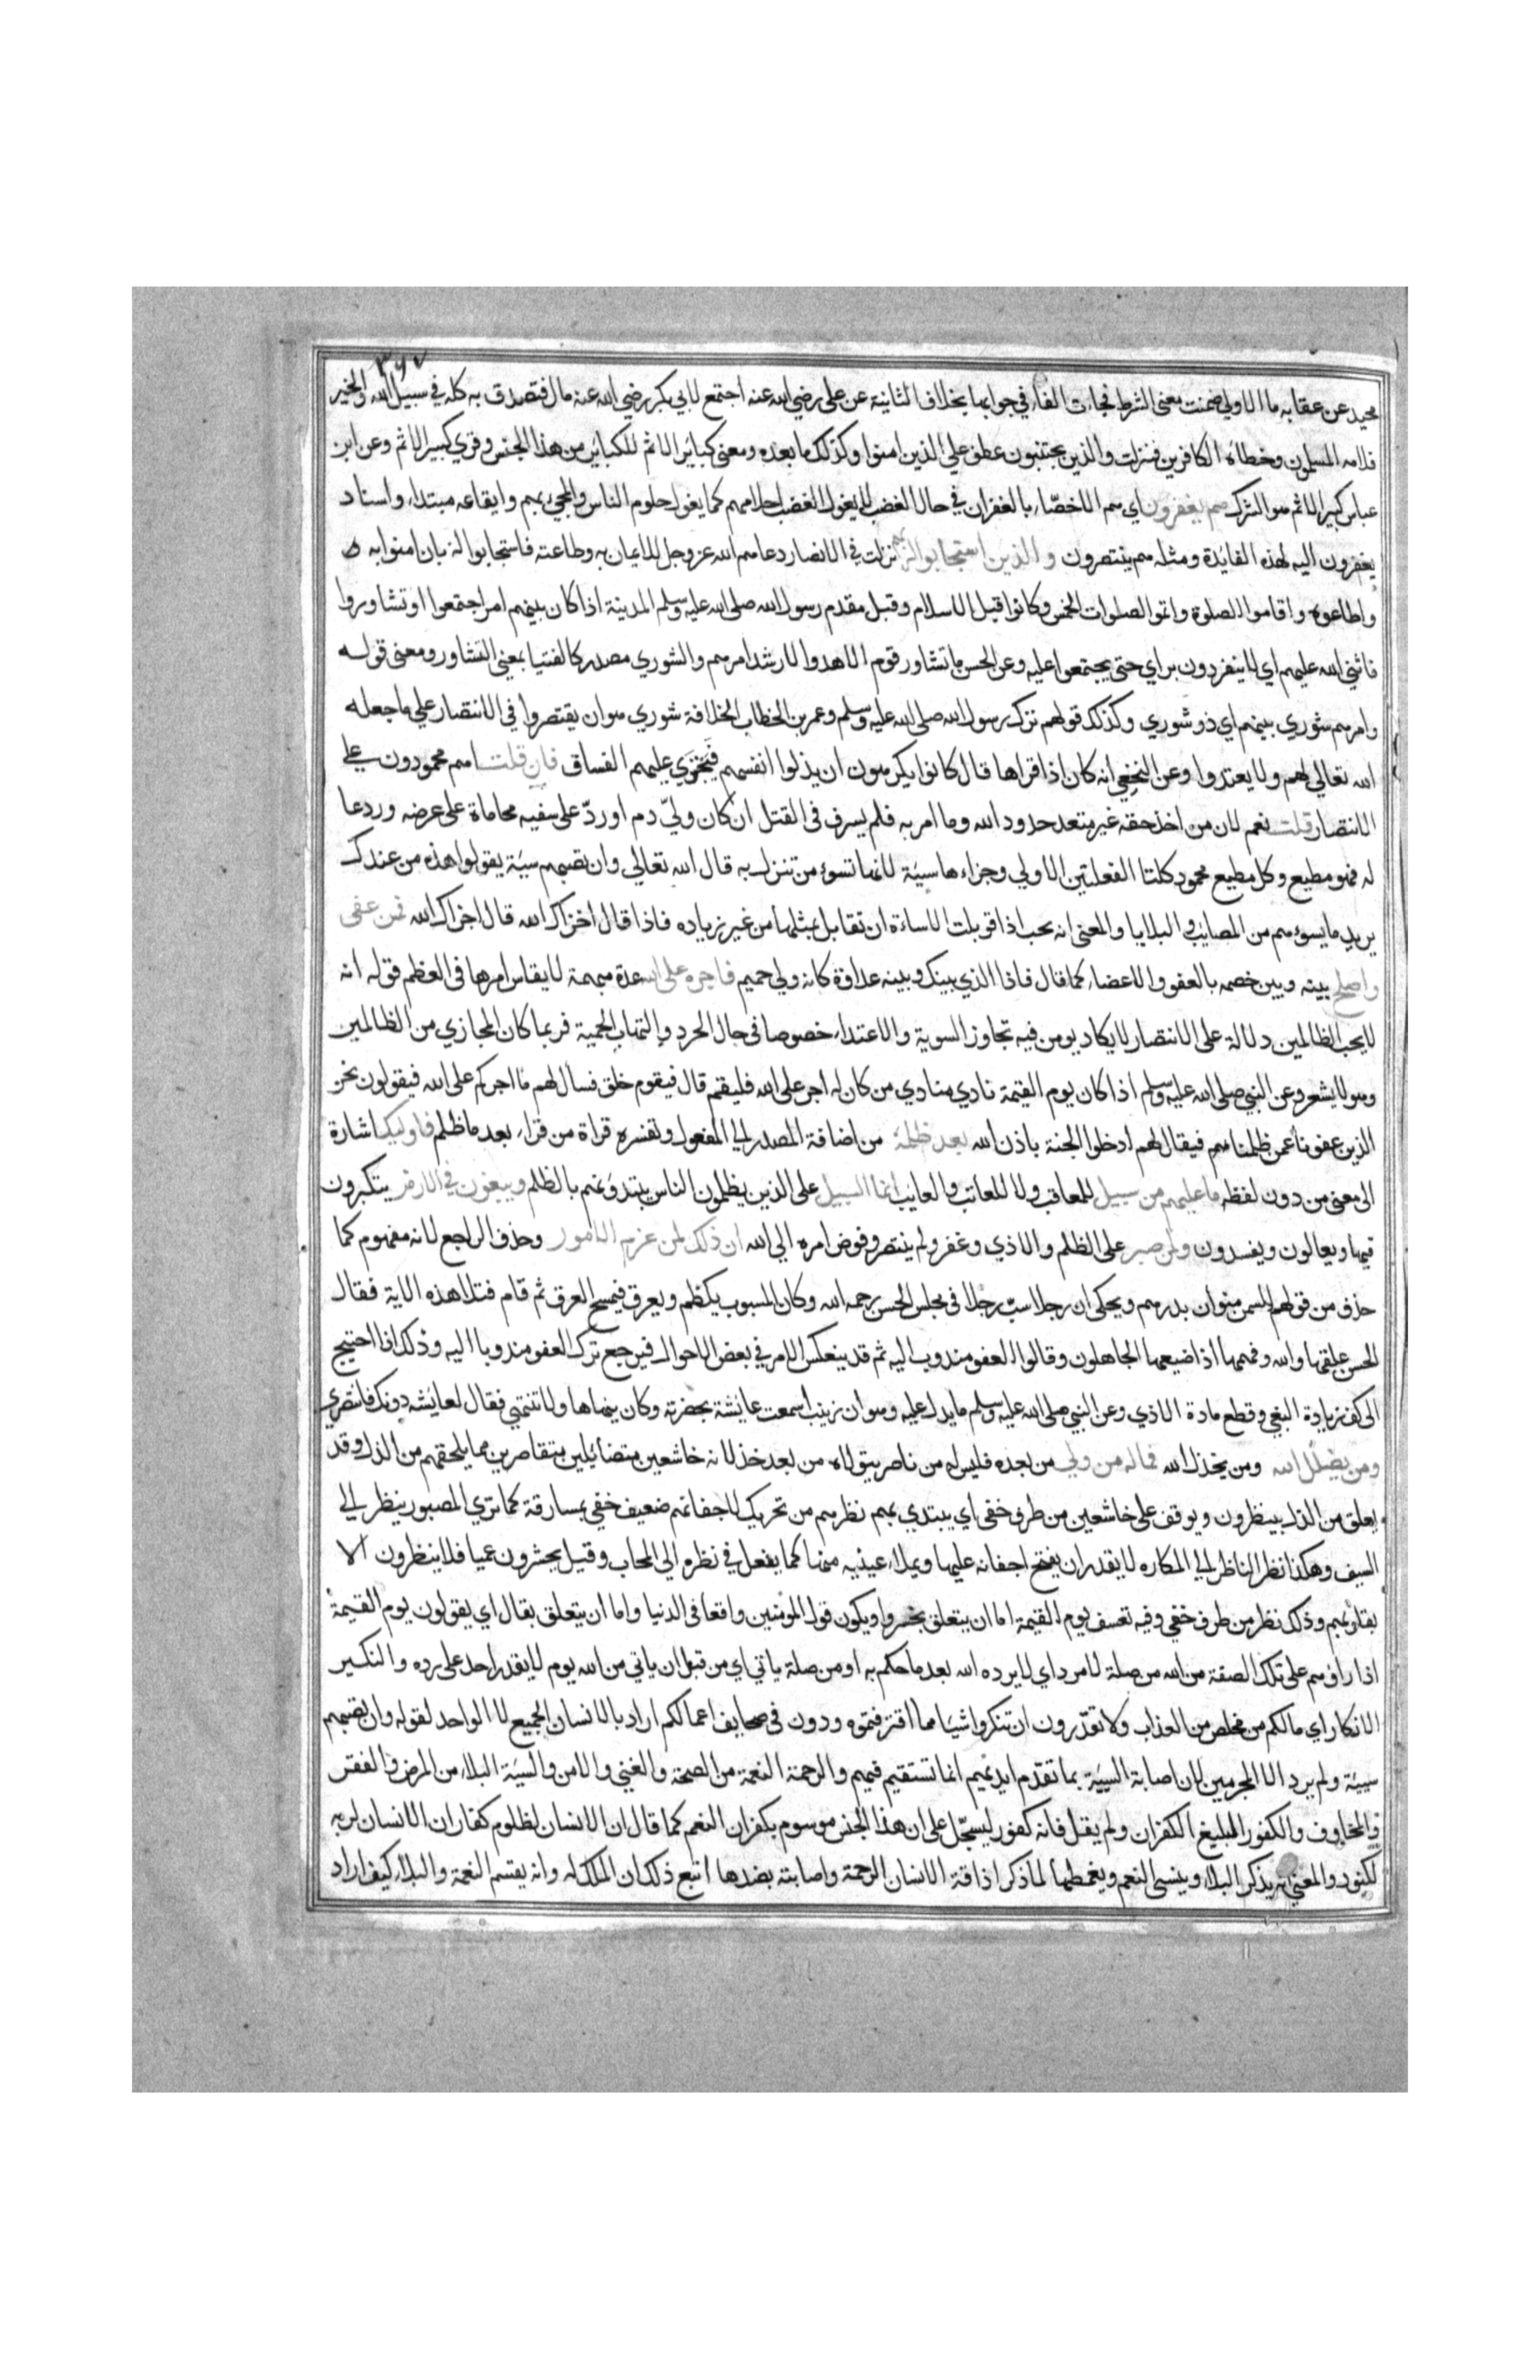 ٣٦٧
محيد عن عقابه ما الاولي ضمنت معني الشرط فجات الفاء في جوابها بخلاف الثانية عن علي رضي الله عنه اجتمع لابي بكر رضي الله عنه مال فتصدق به كله في سبيل الله والخير
فلامه المسلمون وخطاه الكافرين فنزلت والذين يجتنبون عطف علي الذين امنوا وكذلك ما بعده ومعني كبائر الاثم للكبائر من هذا الجنس وقري كبير الاثم وعن ابن
عباس كبير الاثم هو الشرك هم يغفرون اي هم الاخصاء بالغفران في حال الغضب لا يغول الغضب احلامهم كما يغول حلوم الناس والمجيء بهم وايقاعه مبتداء واسناد
يغفرون اليه لهذه الفائدة ومثله هم ينتصرون والذين استجابوا لربهم نزلت في الانصار دعاهم الله عز وجل للايمان به وطاعته فاستجابوا له بان امنوا به
واطاعوه واقاموا الصلوة واتموا الصلوات الخمس وكانوا قبل الاسلام وقبل مقدم رسول الله صلى الله عليه وسلم المدينة اذا كان بينهم امر اجتمعوا اوتشاوروا
فاثني الله عليهم اي لا ينفردون براي حتى يجتمعوا عليه وعن الحسن ما تشاور قوم الا هدوا لارشد امرهم والشوري مصدر كالفتيا بمعني التشاور ومعنى قوله
وامرهم شوري بينهم اي ذو شوري وكذلك قولهم ترك رسول الله صلى الله عليه وسلم وعمر بن الخطاب الخلافة شوري هو ان يقتصروا في الانتصار علي ما جعله
الله تعالي لهم ولا يعتدوا وعن النخعي انه كان اذا قراها قال كانوا يكرهون ان يذلوا انفسهم فيجتري عليهم الفساق فان قلت اهم محمودون علي
الانتصار قلت نعم لان من اخذ حقه غير متعد حدود الله وما امر به فلم يسرف فى القتل ان كان وليّ دم اوردّ على سفيه محاماة على عرضه وردعا
له فهو مطيع وكل مطيع محمود كلتا الفعلتين الاولي وجزاءها سيئة لانها تسوء من تنزل به قال الله تعالي وان تصبهم سيئة يقولوا هذه من عندك
يريد ما يسوءهم من المصائب والبلايا والمعني انه يجب اذا قوبلت الاساءة ان تقابل بمثلها من غير زياده فاذا قال اخزاك الله قال اخزاك الله فمن عفى
واصلح بينه وبين خصمه بالعفو والاعضاء كما قال فاذا الذي بينك وبينه عداوة كانه ولي حميم فاجره على الله عدة مبهمة لا يقاس امرها فى العظم قوله انه
لا يحب الظالمين دلالة على الانتصار لا يكاد يومن فيه تجاوز السوية والاعتداء خصوصا فى حال الحرد والتهاب الحمية فربما كان المجازي من الظالمين
وهو لا يشعر وعن النبي صلى الله عليه وسلم اذا كان يوم القيمة نادي منادي من كان له اجر على الله فليقم قال فيقوم خلق فسال لهم ما اجركم على الله فيقولون نحن
الذين عفونا عمن ظلمنا هم فيقال لهم ادخلوا الجنة باذن الله بعد ظلمه من اضافة المصدر الي المفعول وتفسره قراة من قراء بعد ما ظلم فاوليك اشارة
الى معنى من دون لفظه ما عليهم من سبيل للمعاقب ولا للعاتب والعائب انما السبيل على الذين يظلمون الناس يبتدؤنهم بالظلم ويبغون في الارض يتكبرون
فيها ويعالون ويفسدون ولمن صبر على الظلم والاذي وغفر ولم ينتصر وفوض امره الي الله ان ذلك لمن عزم الامور وحذف الراجع لانه مفهوم كما
حذف من قولهم السمن منوان بدرهم ويحكى ان رجلا سبّ رجلا فى مجلس الحسن رحمه الله وكان المسبوب يكظم ويعرق فيمسح العرق ثم قام فتلا هذه الاية فقال
الحسن عقلها والله وفهمها اذا ضيعها الجاهلون وقالوا العفو مندوب اليه ثم قد ينعكس الامر في بعض الاحوال فيرجع ترك العفو مندوبا اليه وذلك اذا احتيج
الى كف زيادة البغي وقطع مادة الاذي وعن النبي صلى الله عليه وسلم ما يدل عليه وهو ان زينب اسمعت عايشة بحضرته وكان ينهاها ولا تنتهي فقال لعايشه دونك فانتصري
ومن يضلل الله ومن يخذل الله فما له من ولي من بعده فليس له من ناصر يتولاه من بعد خذلانه خاشعين متضائلين متقاصرين مما يلحقهم من الذل وقد
يعلق من الذل بينظرون ويوقف على خاشعين من طرف خفى اي يبتدي بهم نظرهم من تحريك لاجفانهم ضعيف خفي بمسارقة كما تري المصبور ينظر الي
السيف وهكذا نظر الناظر الي المكاره لا يقدر ان يفتح اجفانه عليها ويملاء عينيه منها كما يفعل في نظره الي المحاب وقيل يحشرون عميا فلا ينظرون الا
بقلوبهم وذلك نظر من طرف خفي وفيه تعسف يوم القيمة اما ان يتعلق بخسروا ويكون قول المومنين واقعا فى الدنيا واما ان يتعلق بقال اي يقولون يوم القيمة
اذا راوهم على تلك الصفة من الله من صلة لا مرد اي لا يرده الله بعد ما حكم به او من صلة ياتي اي من قبل ان ياتي من الله يوم لا يقدر احد على رده والنكير
الانكار اي ما لكم من مخلص من العذاب ولا تقدرون ان تنكروا شيا مما اقترفتموه ودون فى صحايف اعمالكم اراد بالانسان الجميع لا الواحد لقوله وان تصبهم
سيئة ولم يرد الا المجرمين لان اصابة السيئة بما تقدم ايديهم انما تستقيم فيهم والرحمة النعمة من الصحة والغني والامن والسيئة البلاء من المرض والفقر
والمخاوف والكفور المبليغ الكفران ولم يقل فانه كفور ليسجّل على ان هذا الجنس موسوم بكفران النعم كما قال ان الانسان لظلوم كفار ان الانسان لربه
لكنود والمعني انه يذكر البلاء وينسى النعم ويغمطها لما ذكر اذاقة الانسان الرحمة واصابته بضدها اتبع ذلك ان الملك له وانه يقسم النعمة والبلاء كيف اراد